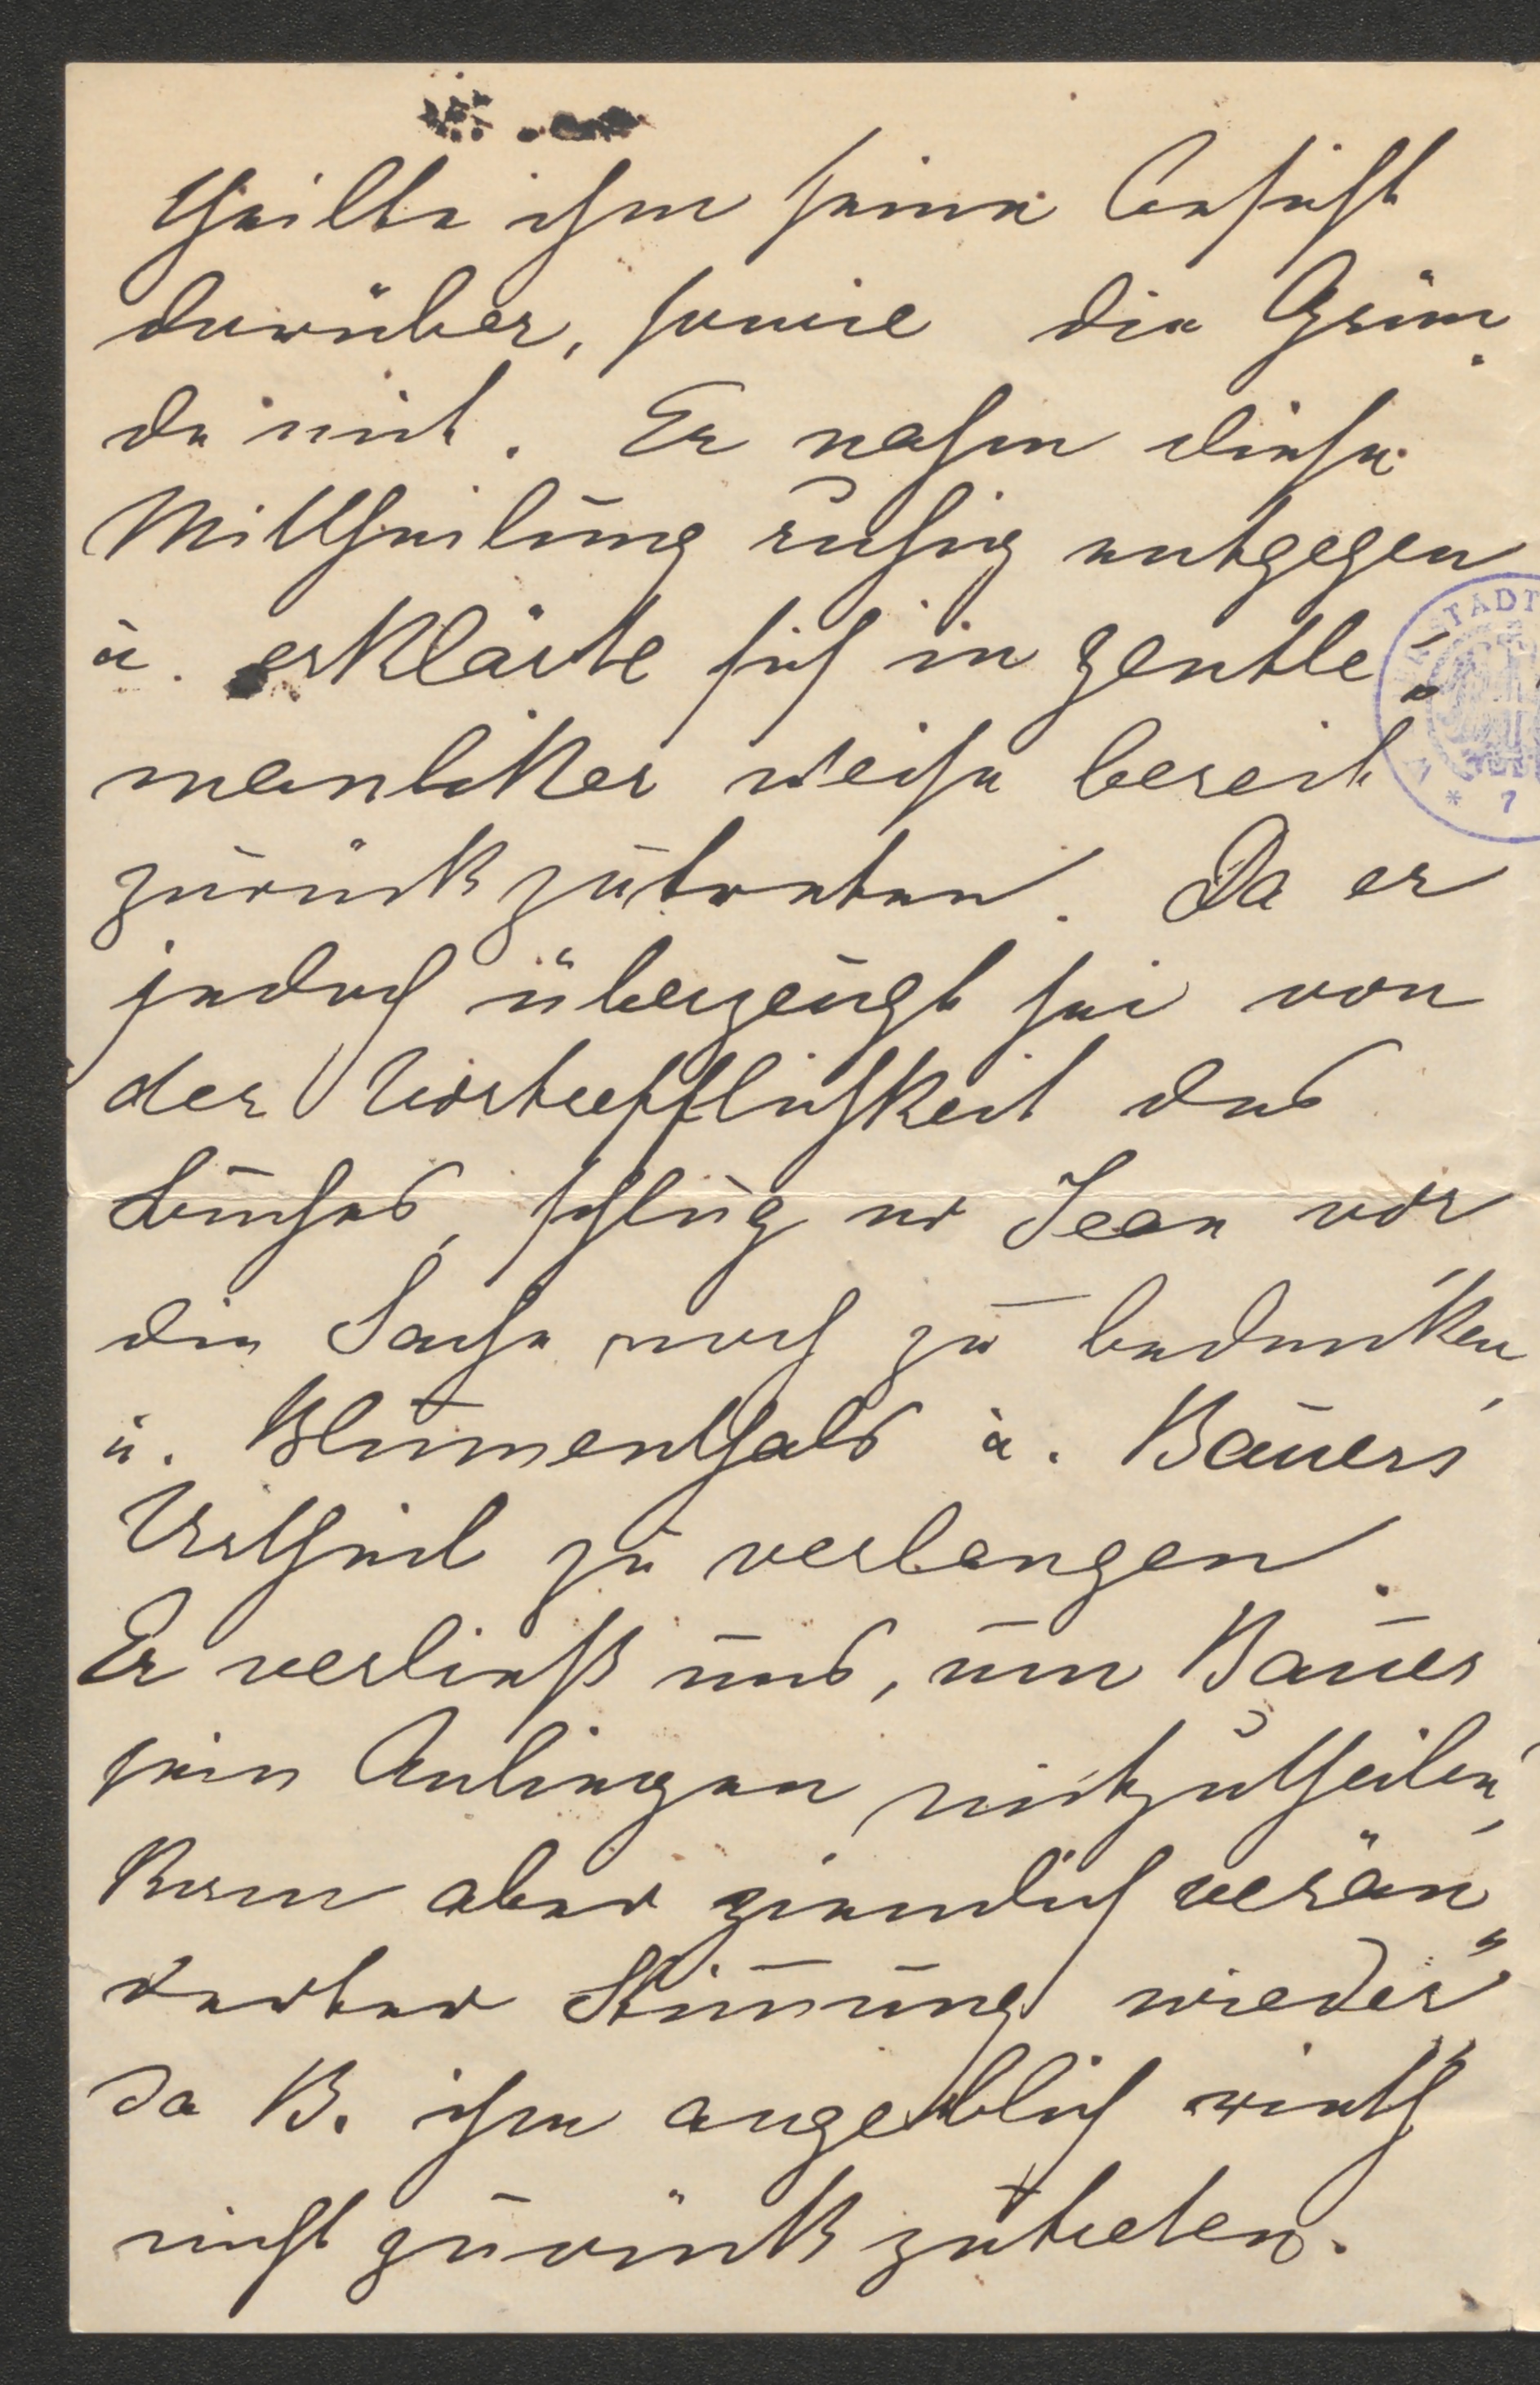 theilte ihm seine Ansicht
darüber, sowie die Grün„
de mit. Er nahm diese
Mittheilung ruhig entgegen
u. erklärte sich in gentle„
manliker Weise bereit
zurückzutreten. Da er
jedoch überzeugt sei von
der Vortrefflichkeit des
Buches, schlug er Jean vor
die Sache noch zu bedenken,
u. Blumenthals u. Bauers
Urtheil zu verlangen.
Er verließ uns, um Bauer
sein Anliegen mitzutheilen,
kam aber ziemlich verän„
derter Stimmung wieder,
da B. ihm angeblich rieth
nicht zurückzutreten.
STADT
* 7